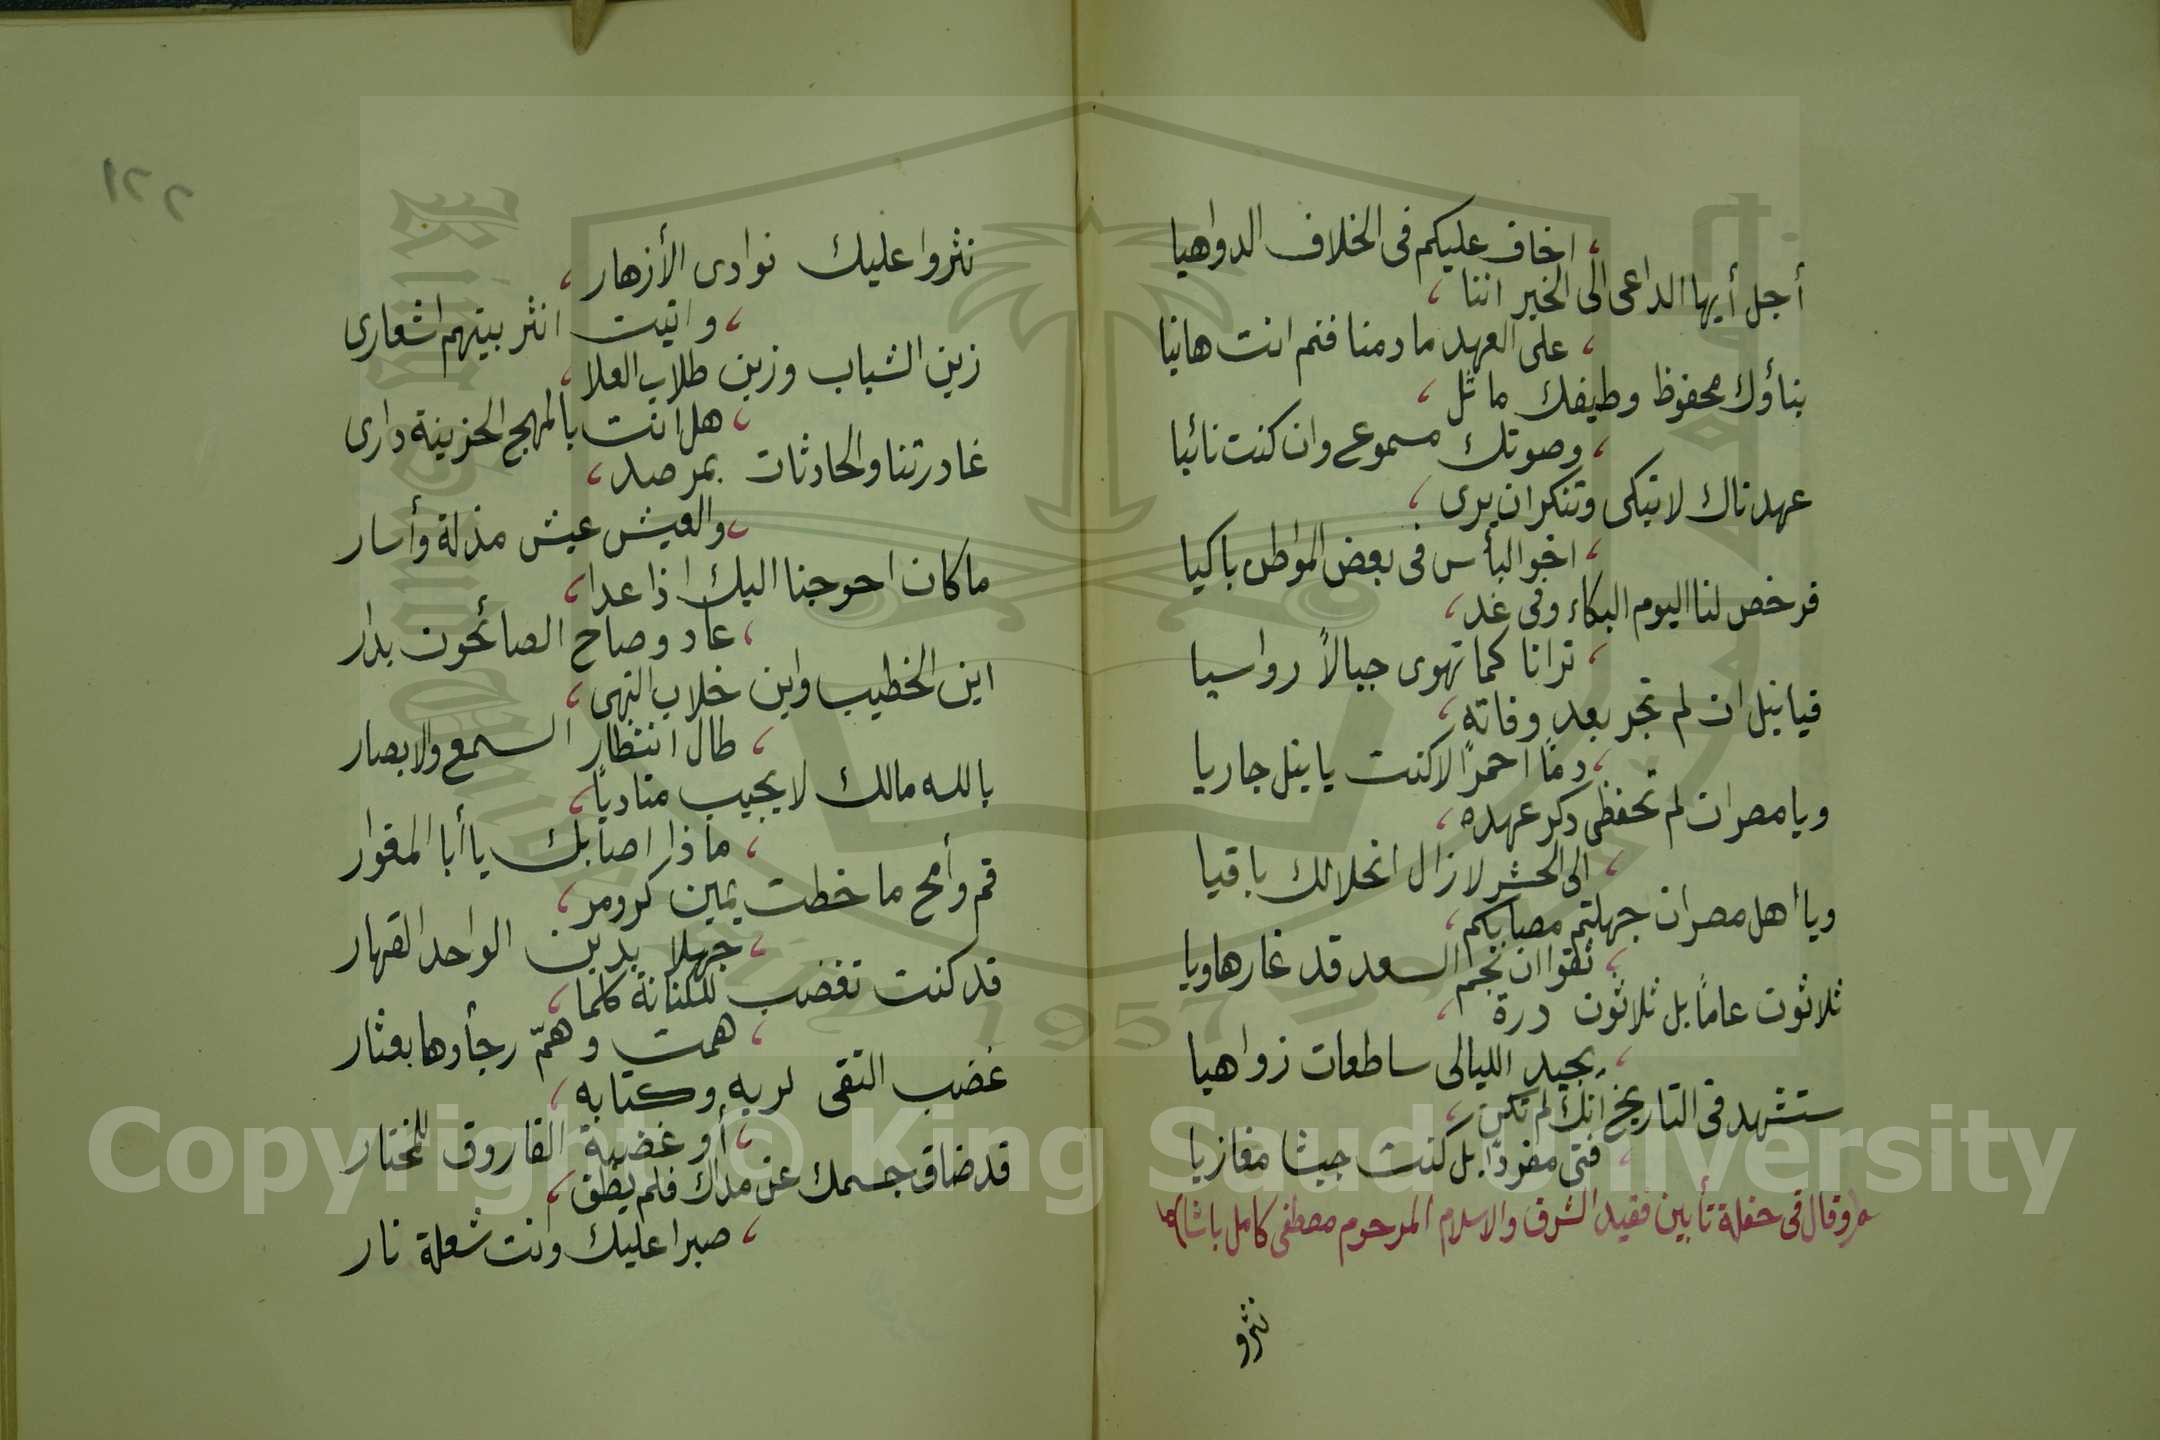 اخاف عليكم فى الخلاف الدواهيا
أجل أيها الداعى الى الخير اننا
على العهد مادمنا فنم انت هانيا
بناؤك محفوظ وطيفك ماثل
وصوتك مسموع وان كنت نائيا
عهدناك لا تبكى وتنكر ان يرى
اخو البأس فى بعض المواطن باكيا
فرخص لنا اليوم البكاء وفى غد
ترانا كما تهوى جبالاً رواسيا
فيا نيل ان لم تجر بعد وفاته
دمًا احمرًا لا كنت يا نيل جاريا
ويا مصر ان لم تحفظى ذكر عهده
الى الحشر لا زال انحلالك باقيا
ويا اهل مصر ان جهلتم مصابكم
ثقوا ان نجم السعد قد غار هاويا
ثلاثون عامًا بل ثلاثون درة
بجيد الليالى ساطعات زواهيا
ستشهد فى التاريخ أنك لم تكن
فتى مفردًا بل كنت جيشا مغازيا
(وقال فى حفلة تأبين فقيد الشرق والاسلام المرحوم مصطفى كامل باشا)
نثرو
٢٢١
نثروا عليك نوادى الأزهار
واتيت انثر بينهم اشعارى
زين الشباب وزين طلاب العلا
هل انت بالمهج الحزينة دارى
غادرتنا والحادثات بمرصد
والعيش عيش مذلة وأسار
ما كان احوجنا اليك اذا عدا
عاد وصاح الصائحون بدار
اين الخطيب واين خلاب النهى
طال انتظار السمع والابصار
بالله مالك لا يجيب مناديًا
ماذا اصابك يا أبا المغوار
قم وأمح ما خطت يمين كرومر
جهلا بدين الواحد القهار
قد كنت تغضب للكنانة كلما
همت وهمّ رجأوها بعثار
غضب التقى لربه وكتابه
أو غضبة الفاروق للمختار
قد ضاق جسمك عن مداك فلم يطق
صبرا عليك ونت شعلة نار
Copyright © King Saud University
1957